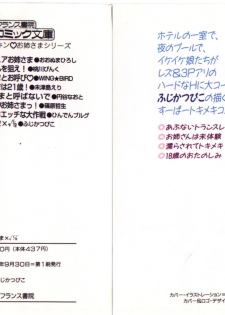 フランス書院
コミック文庫
キン♡お姉さまシリーズ
ュアお姉さま●おおぬまひろし
を狙え!●桃川ぴんく
とお呼び♡●WING★BIRD
は21歳!●末津島えり
まと呼ばないで●円谷なおと
お姉さまっ!●篠原哲生
エッチな大作戦●ひんでんブルグ
●ふじかつぴこ
ま×√¹⁸
0円(本体437円)
年9月30日=第1刷発行
じかつぴこ
フランス書院
ホテルの一室で、
夜のプールで、
イケイケ娘たちが
レス&3Pアリの
ハードなHに大コー
ふじかつぴこの描く
すーぱートキメキコ
●あぶないトランスレ
●お姉さんは未体験
●濡らされてトキメキ
●18歳のおたのしみ
カバー・イラストレーション=
カバー&ロゴ・デザイ